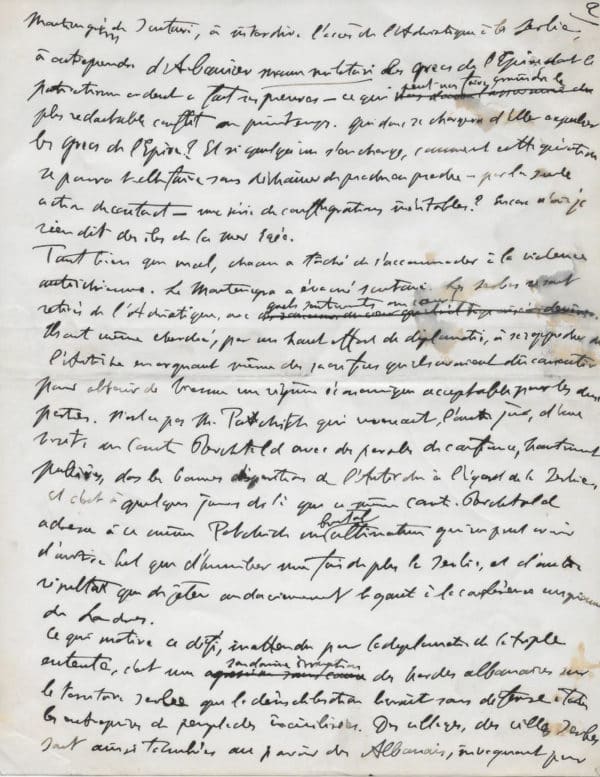 2
Monténégrins de Scutari, à interdire l'accès de l'Adriatique à la Serbie,
à entreprendre d'Albaniser manu militari les grecs de l'Epire dont le
patriotisme ardent a fait ses preuves — ce qui peut nous faire craindre le
plus redoutable conflit au printemps. Qui donc se chargera d'Elle expulser
les grecs de l'Epire? Et si quelqu'un s'en charge, comment cette opération
se pourra-t-elle faire sans déchaîner de proche en proche — par la seule
action du contact — une série de conflagrations inévitables? Encore n'ai-je
rien dit des îles de la mer Egée.
Tant bien que mal, chacun a tâché de s'accommoder à la violence
autrichienne. Le Monténégro a évacué Scutari. Les serbes se sont
retirés de l'Adriatique, avec quels sentiments on
Ils ont même cherché, par un haut effort de diplomatie, à se rapprocher de
l'Autriche en arguant même des sacrifices qu'ils avaient dû consentir
pour obtenir de Vienne un régime économique acceptable pour les deux
parties. N'est-ce pas M. Patchitch qui revenait, l'autre jour, d'une
visite au Comte Berchtold avec des paroles de confiance, hautement
publiées, dans les bonnes dispositions de l'Autriche à l'égard de la Serbie,
et c'est à quelques jours de là que ce même comte Berchtold
adresse à ce même Patchitch un brutal ultimatum qui ne peut avoir
d'autre but que d'humilier une fois de plus la Serbie, et d'autre
résultat que de jeter audacieusement le gant à la conférence
de Londres.
Ce qui motive ce défi, inattendu par la diplomatie de la triple
entente, c'est une soudaine irruption des hordes albanaises sur
le territoire serbe que la démobilisation livrait sans défense
les entreprises de peuplades incivilisées. Des villages, des villes serbes
sont ainsi tombées au pouvoir des Albanais, invoquant pour